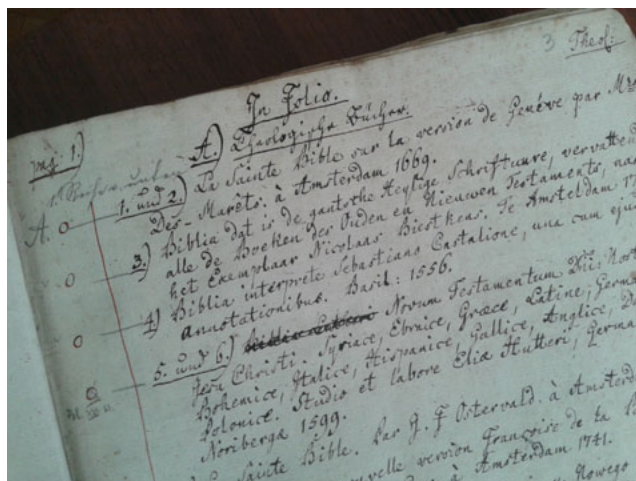 3 Theol:
In Folio.
pag: 1.)
A.) Theologische Bücher.
1. und 2.) La Sainte Bible sur la version de Genéve par
Des-Maréts. à Amsterdam 1669.
A.
3.) Biblia dat is de gantsche Heylige Schriftuure, vervatten
alle de Boeken des Ouden en Nieuwen Testaments, na
het Exemplaar Nicolaas Biestkens. Te Amsteldam
4.) Biblia interprete Sebastiano Castalione, una cum ejus
annotationibus. Basil: 1556.
5. und 6.) Novum Testamentum Dni: Nost
Jesu Christi. Syriace, Ebraice, Græce, Latine, Germa
Bohemice, Italice, Hispanice, Gallice, Anglice, D
Polonice. Studio et labore Eliæ Hutteri, Germa
Noribergæ 1599.
Sainte Bible. Par J. F Ostervald. à Amsterd
velle version Françoise de la
à Amsterdam 1741.